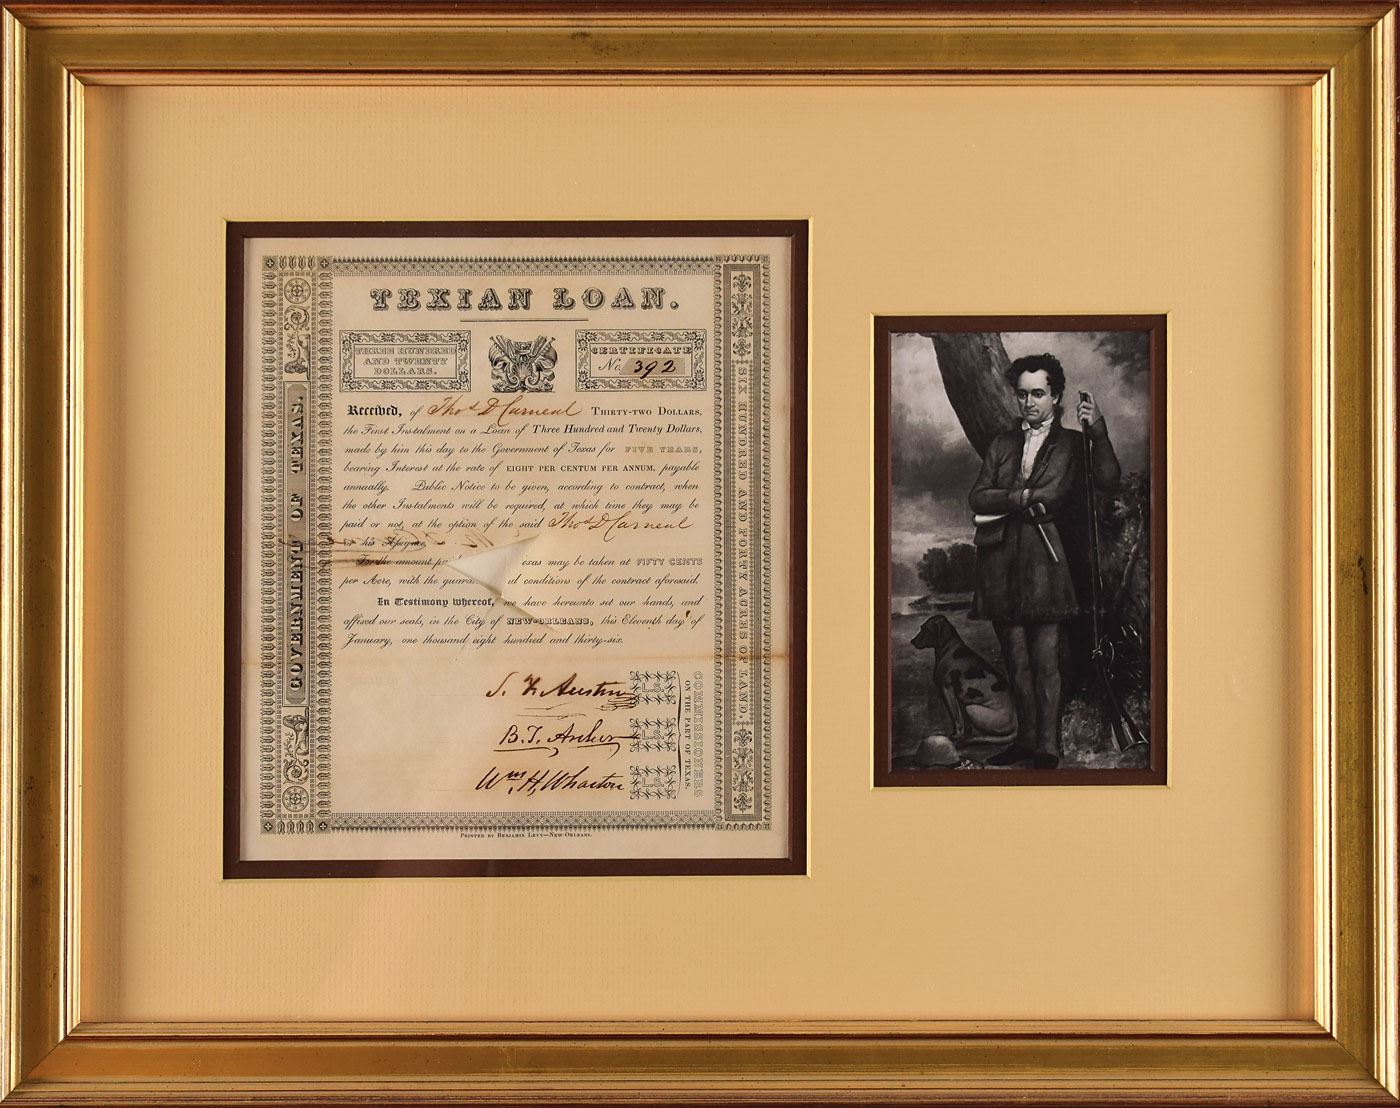 TEXIAN LOAN.
THREE HUNDRED
AND TWENTY
DOLLARS.
CERTIFICATE
No. 392
Received, of Thos D Carneal THIRTY-TWO DOLLARS,
the First Instalment on a Loan of Three Hundred and Twenty Dollars,
made by him this day to the Government of Texas for FIVE YEARS,
bearing Interest at the rate of EIGHT PER CENTUM PER ANNUM, payable
annually. Public Notice to be given, according to contract, when
the other Instalments will be required, at which time they may be
paid or not, at the option of the said Thos D Carneal
or his Assignee.
For the amount exas may be taken at FIFTY CENTS
per Acre, with the d conditions of the contract aforesaid.
In Testimony whereof, we have hereunto set our hands, and
affixed our seals, in the City of NEW-ORLEANS, this Eleventh day of
January, one thousand eight hundred and thirty-six.
S. F. Austin L.S.
B. T. Archer L.S.
Wm H. Wharton L.S.
COMMISSIONERS
ON THE PART OF TEXAS.
GOVERNMENT OF TEXAS.
SIX HUNDRED AND FORTY ACRES OF LAND.
PRINTED BY BENJAMIN LEVY—NEW-ORLEANS.